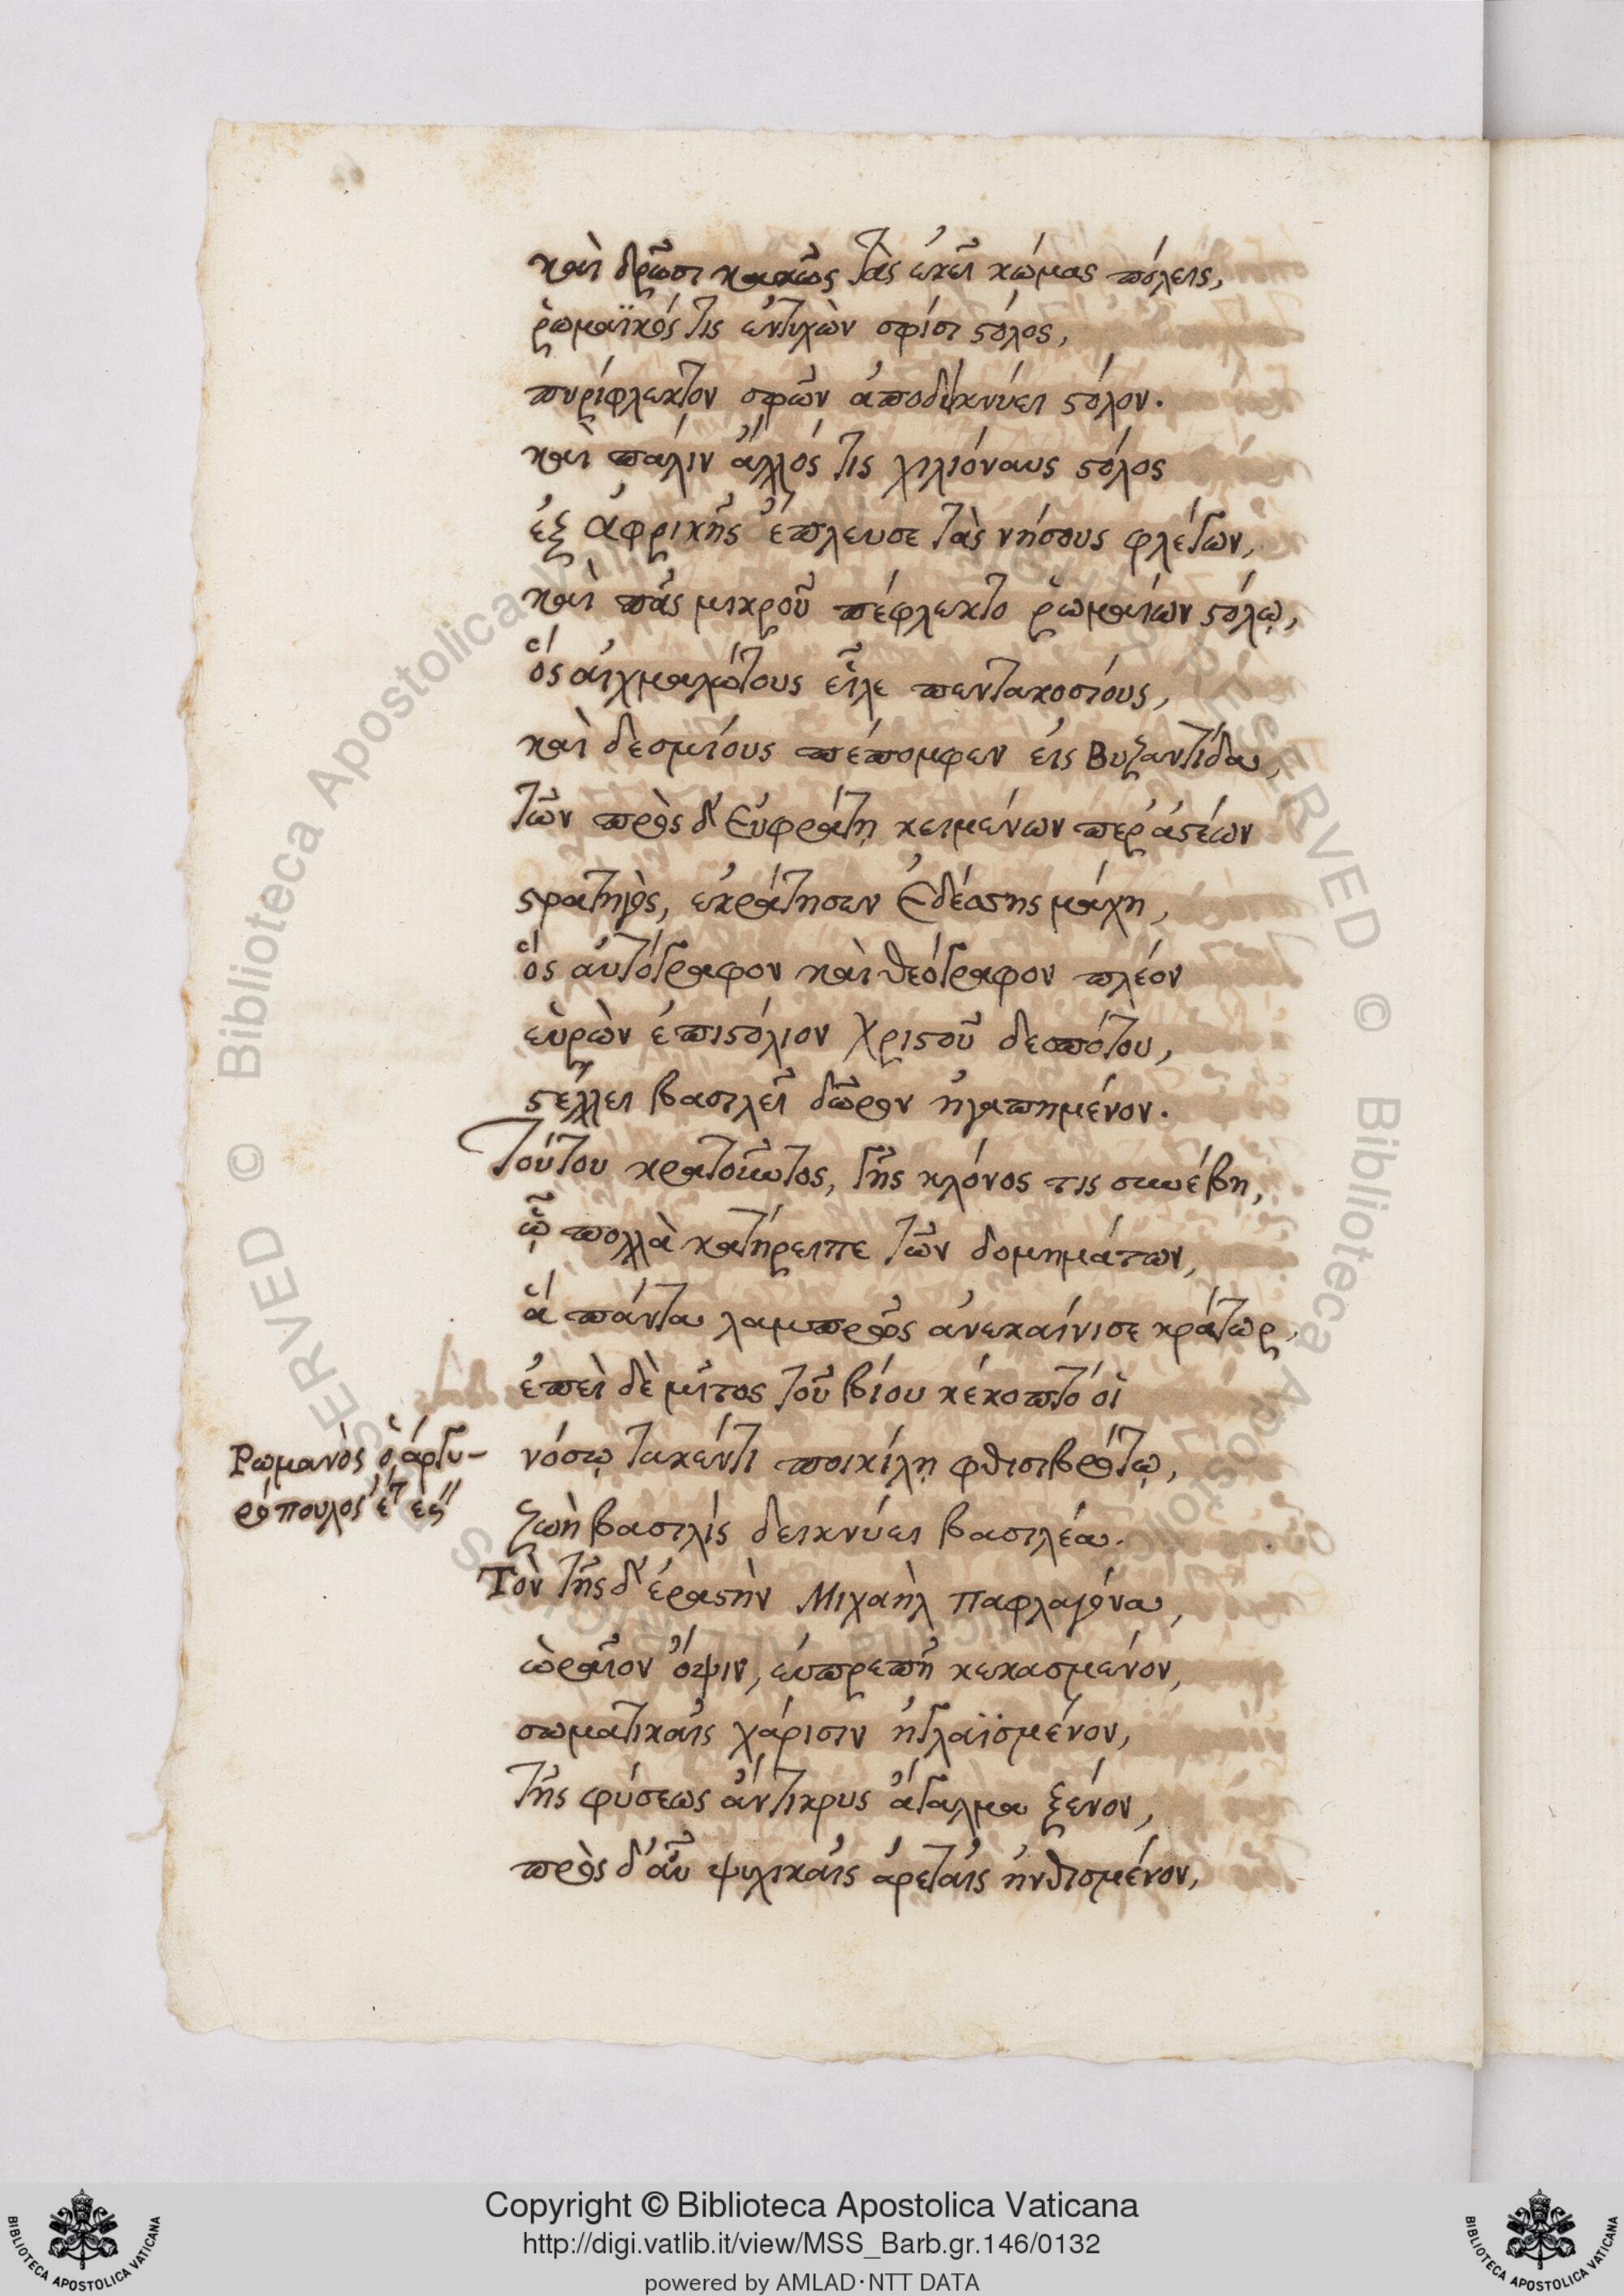 καὶ δρῶσι κακῶς τὰς ἐκεῖ κώμας πόλεις,
ῥωμαϊκός τις ἐντυχὼν σφίσι στόλος,
πυρίφλεκτον σφῶν ἀποδεικνύει στόλον.
καὶ πάλιν ἄλλός τις χιλιόναυς στόλος
ἐξ ἀφρικῆς ἔπλευσε τὰς νήσους φλέγων,
καὶ πᾶς μικροῦ πέφλεκτο ῥωμαίων στόλῳ,
ὅς αἰχμαλώτους εἷλε πεντακοσίους,
καὶ δεσμίους πέπομφεν εἰς Βυζαντίδα,
τῶν πρὸς δ' Εὐφράτῃ κειμένων περ ἀστέων
στρατηγὸς, ἐκράτησεν Ἐδέσσης μάχῃ,
ὅς αὐτόγραφον καὶ θεόγραφον πλέον
εὑρὼν ἐπιστόλιον Χριστοῦ δεσπότου,
στέλλει βασιλεῖ δῶρον ἠγαπημένον.
Τούτου κρατοῦντος, γῆς κλόνος τις συνέβη,
ᾧ πολλὰ κατήρειπε τῶν δομημάτων,
ἅ πάντα λαμπρῶς ἀνεκαίνισε κράτωρ,
ἐπεὶ δὲ μίτος τοῦ βίου κέκοπτό οἱ
νόσῳ τακέντι ποικίλῃ φθισιβρότῳ,
Ῥωμανὸς ὁ ἀργυ-
ρόπουλος ἔτ
ζωὴ βασιλὶς δεικνύει βασιλέα.
Τὸν τῆς δ' ἐραστὴν Μιχαὴλ παφλαγόνα,
ὡραῖον ὄψιν, εὐπρεπῆ κεκασμένον,
σωματικαῖς χάρισιν ἠγλαϊσμένον,
τῆς φύσεως ἄντικρυς ἄγαλμα ξένον,
πρὸς δ' αὖ ψυχικαῖς ἀρεταῖς ἠνθισμένον,
Copyright © Biblioteca Apostolica Vaticana
http://digi.vatlib.it/view/MSS_Barb.gr.146/0132
powered by AMLAD·NTT DATA
BIBLIOTECA APOSTOLICA VATICANA
BIBLIOTECA APOSTOLICA VATICANA